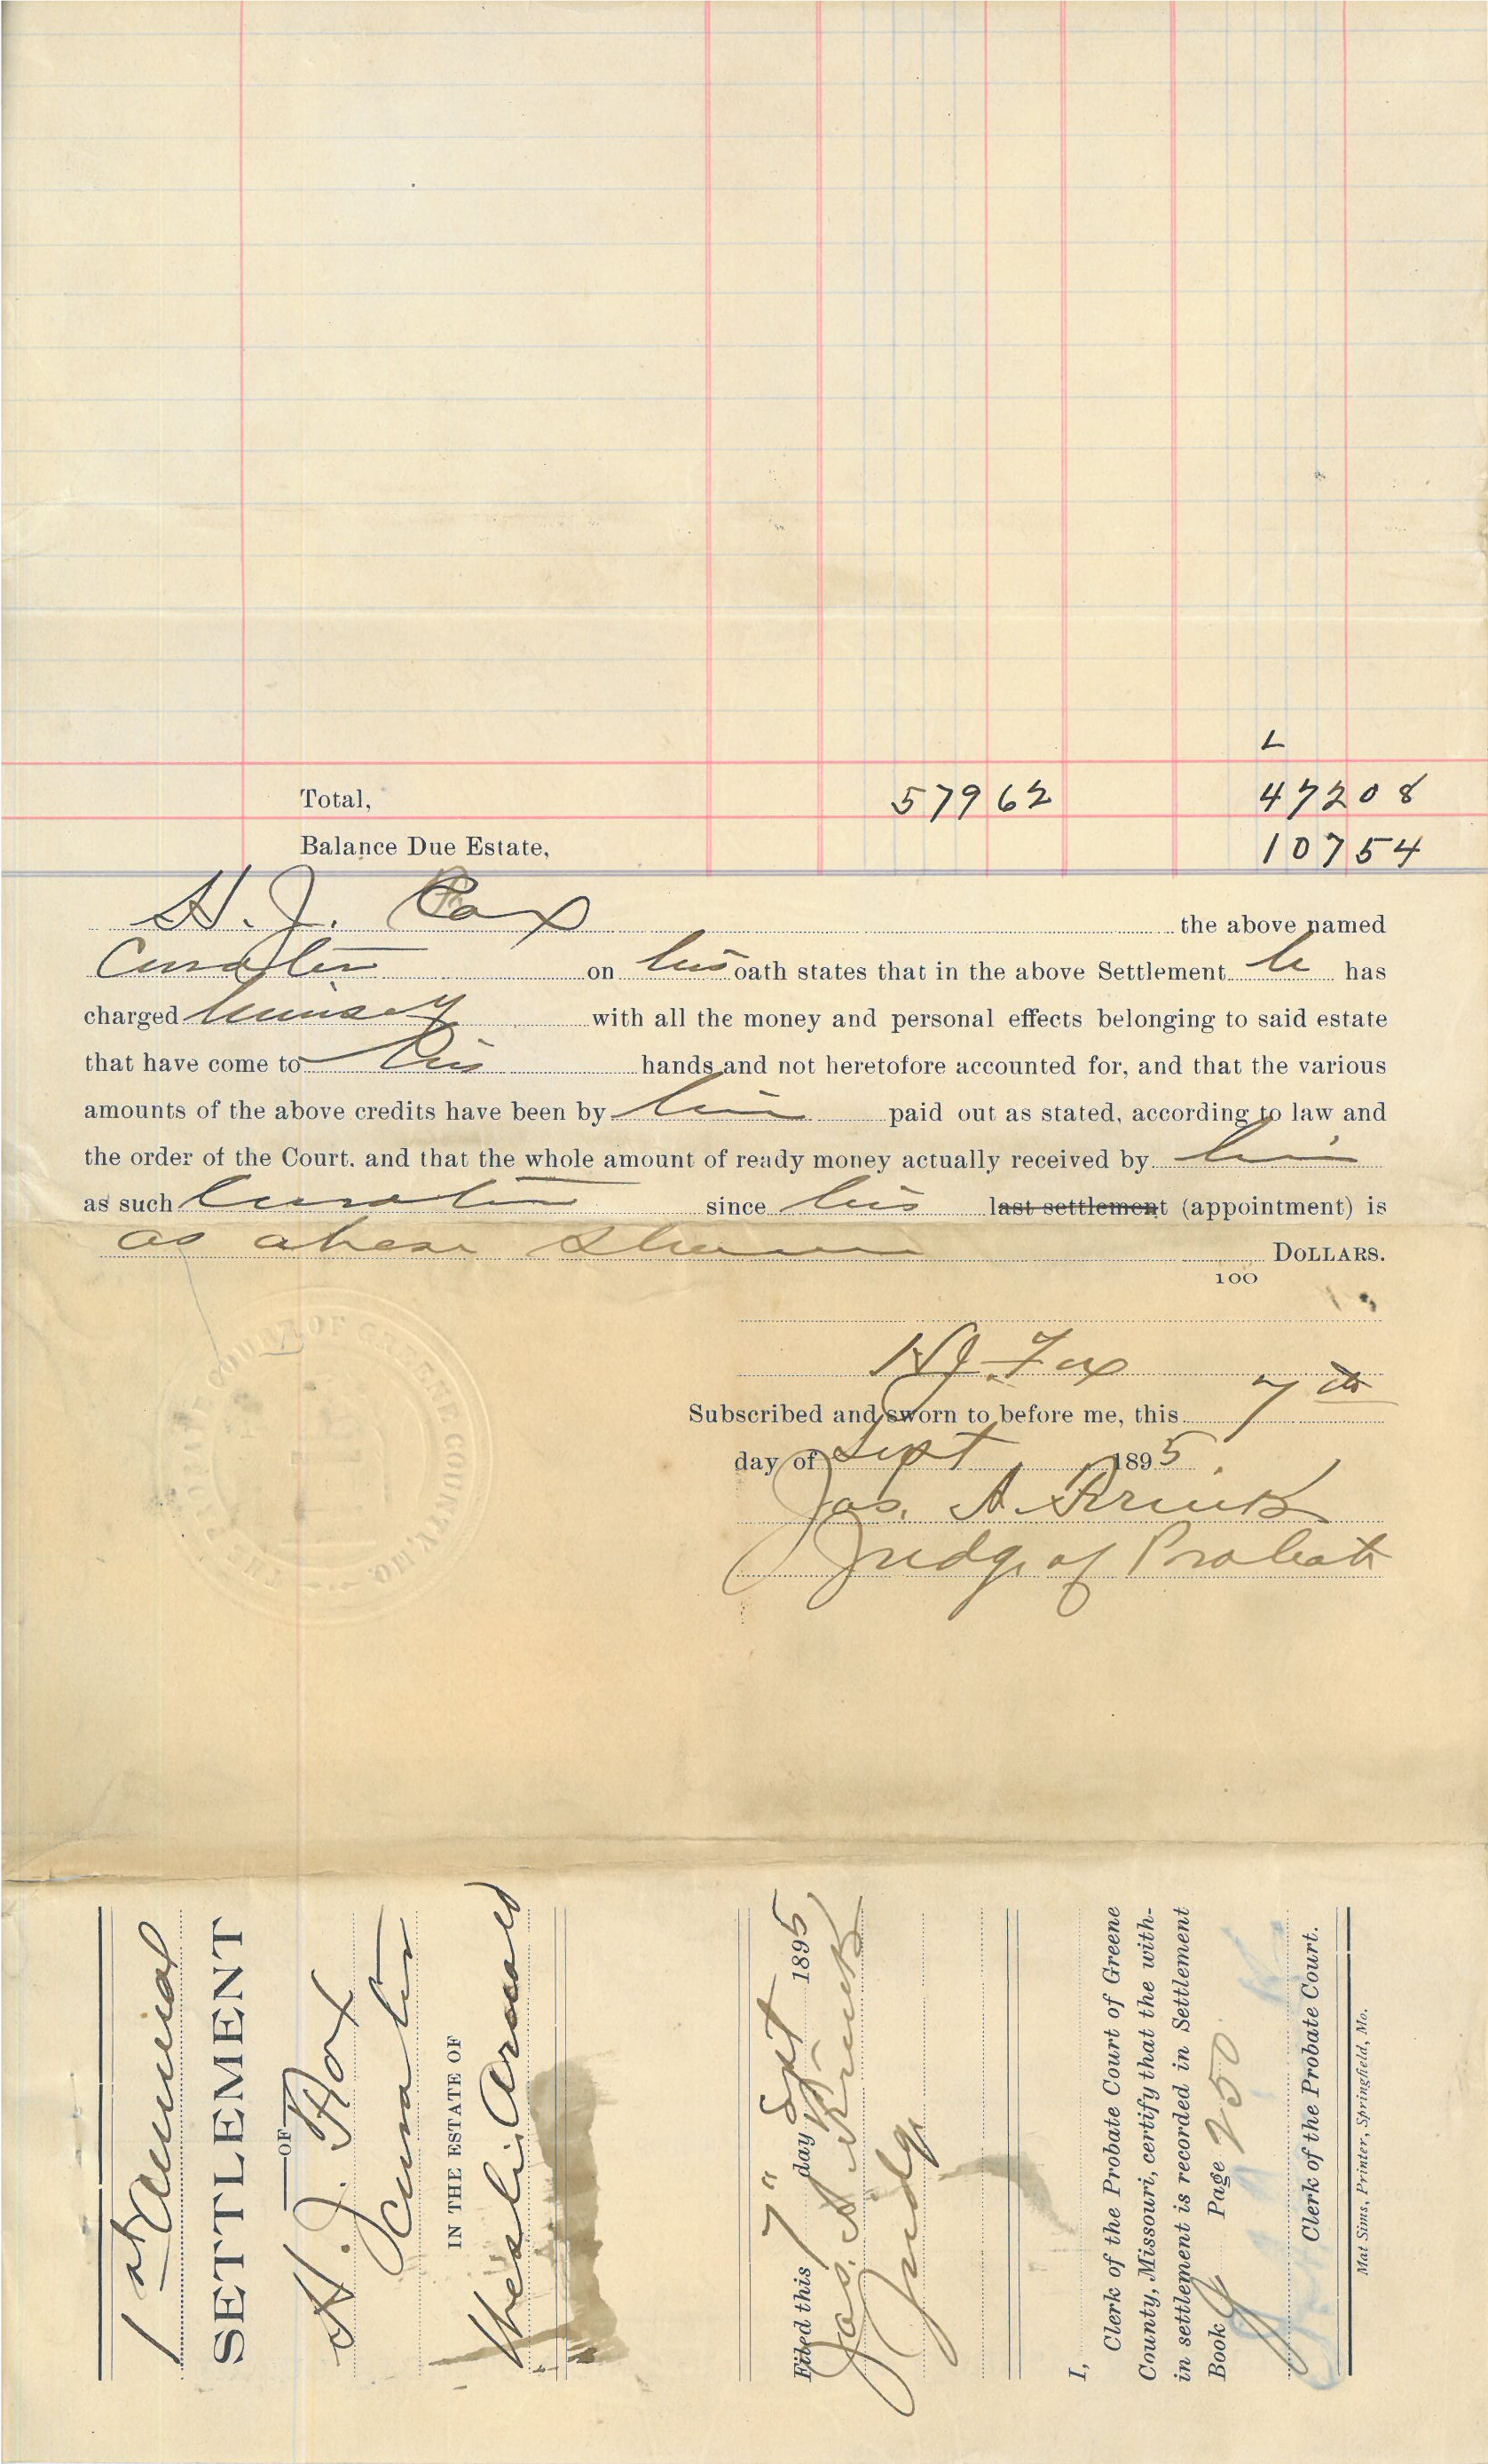 L
Total, 579 62 472 08
Balance Due Estate, 107 54
H. J. Fox the above named
Curator on his oath states that in the above Settlement he has
charged himself with all the money and personal effects belonging to said estate
that have come to his hands and not heretofore accounted for, and that the various
amounts of the above credits have been by him paid out as stated, according to law and
the order of the Court. and that the whole amount of ready money actually received by him
as such Curator since his last settlement (appointment) is
as above shown DOLLARS.
100
H J Fox
Subscribed and sworn to before me, this 7th
day of Sept 1895.
Jas. A. Brink
Judge of Probate
COURT OF GREENE COUNTY, MO.
1st Annual
SETTLEMENT
OF
H. J. Fox
Curator
IN THE ESTATE OF
Arnold
Filed this 7" day Sept 1895
Jas. A Brink
Judge
I,
Clerk of the Probate Court of Greene
County, Missouri, certify that the with-
in settlement is recorded in Settlement
Book J Page 250
Clerk of the Probate Court.
Mat Sims, Printer, Springfield, Mo.